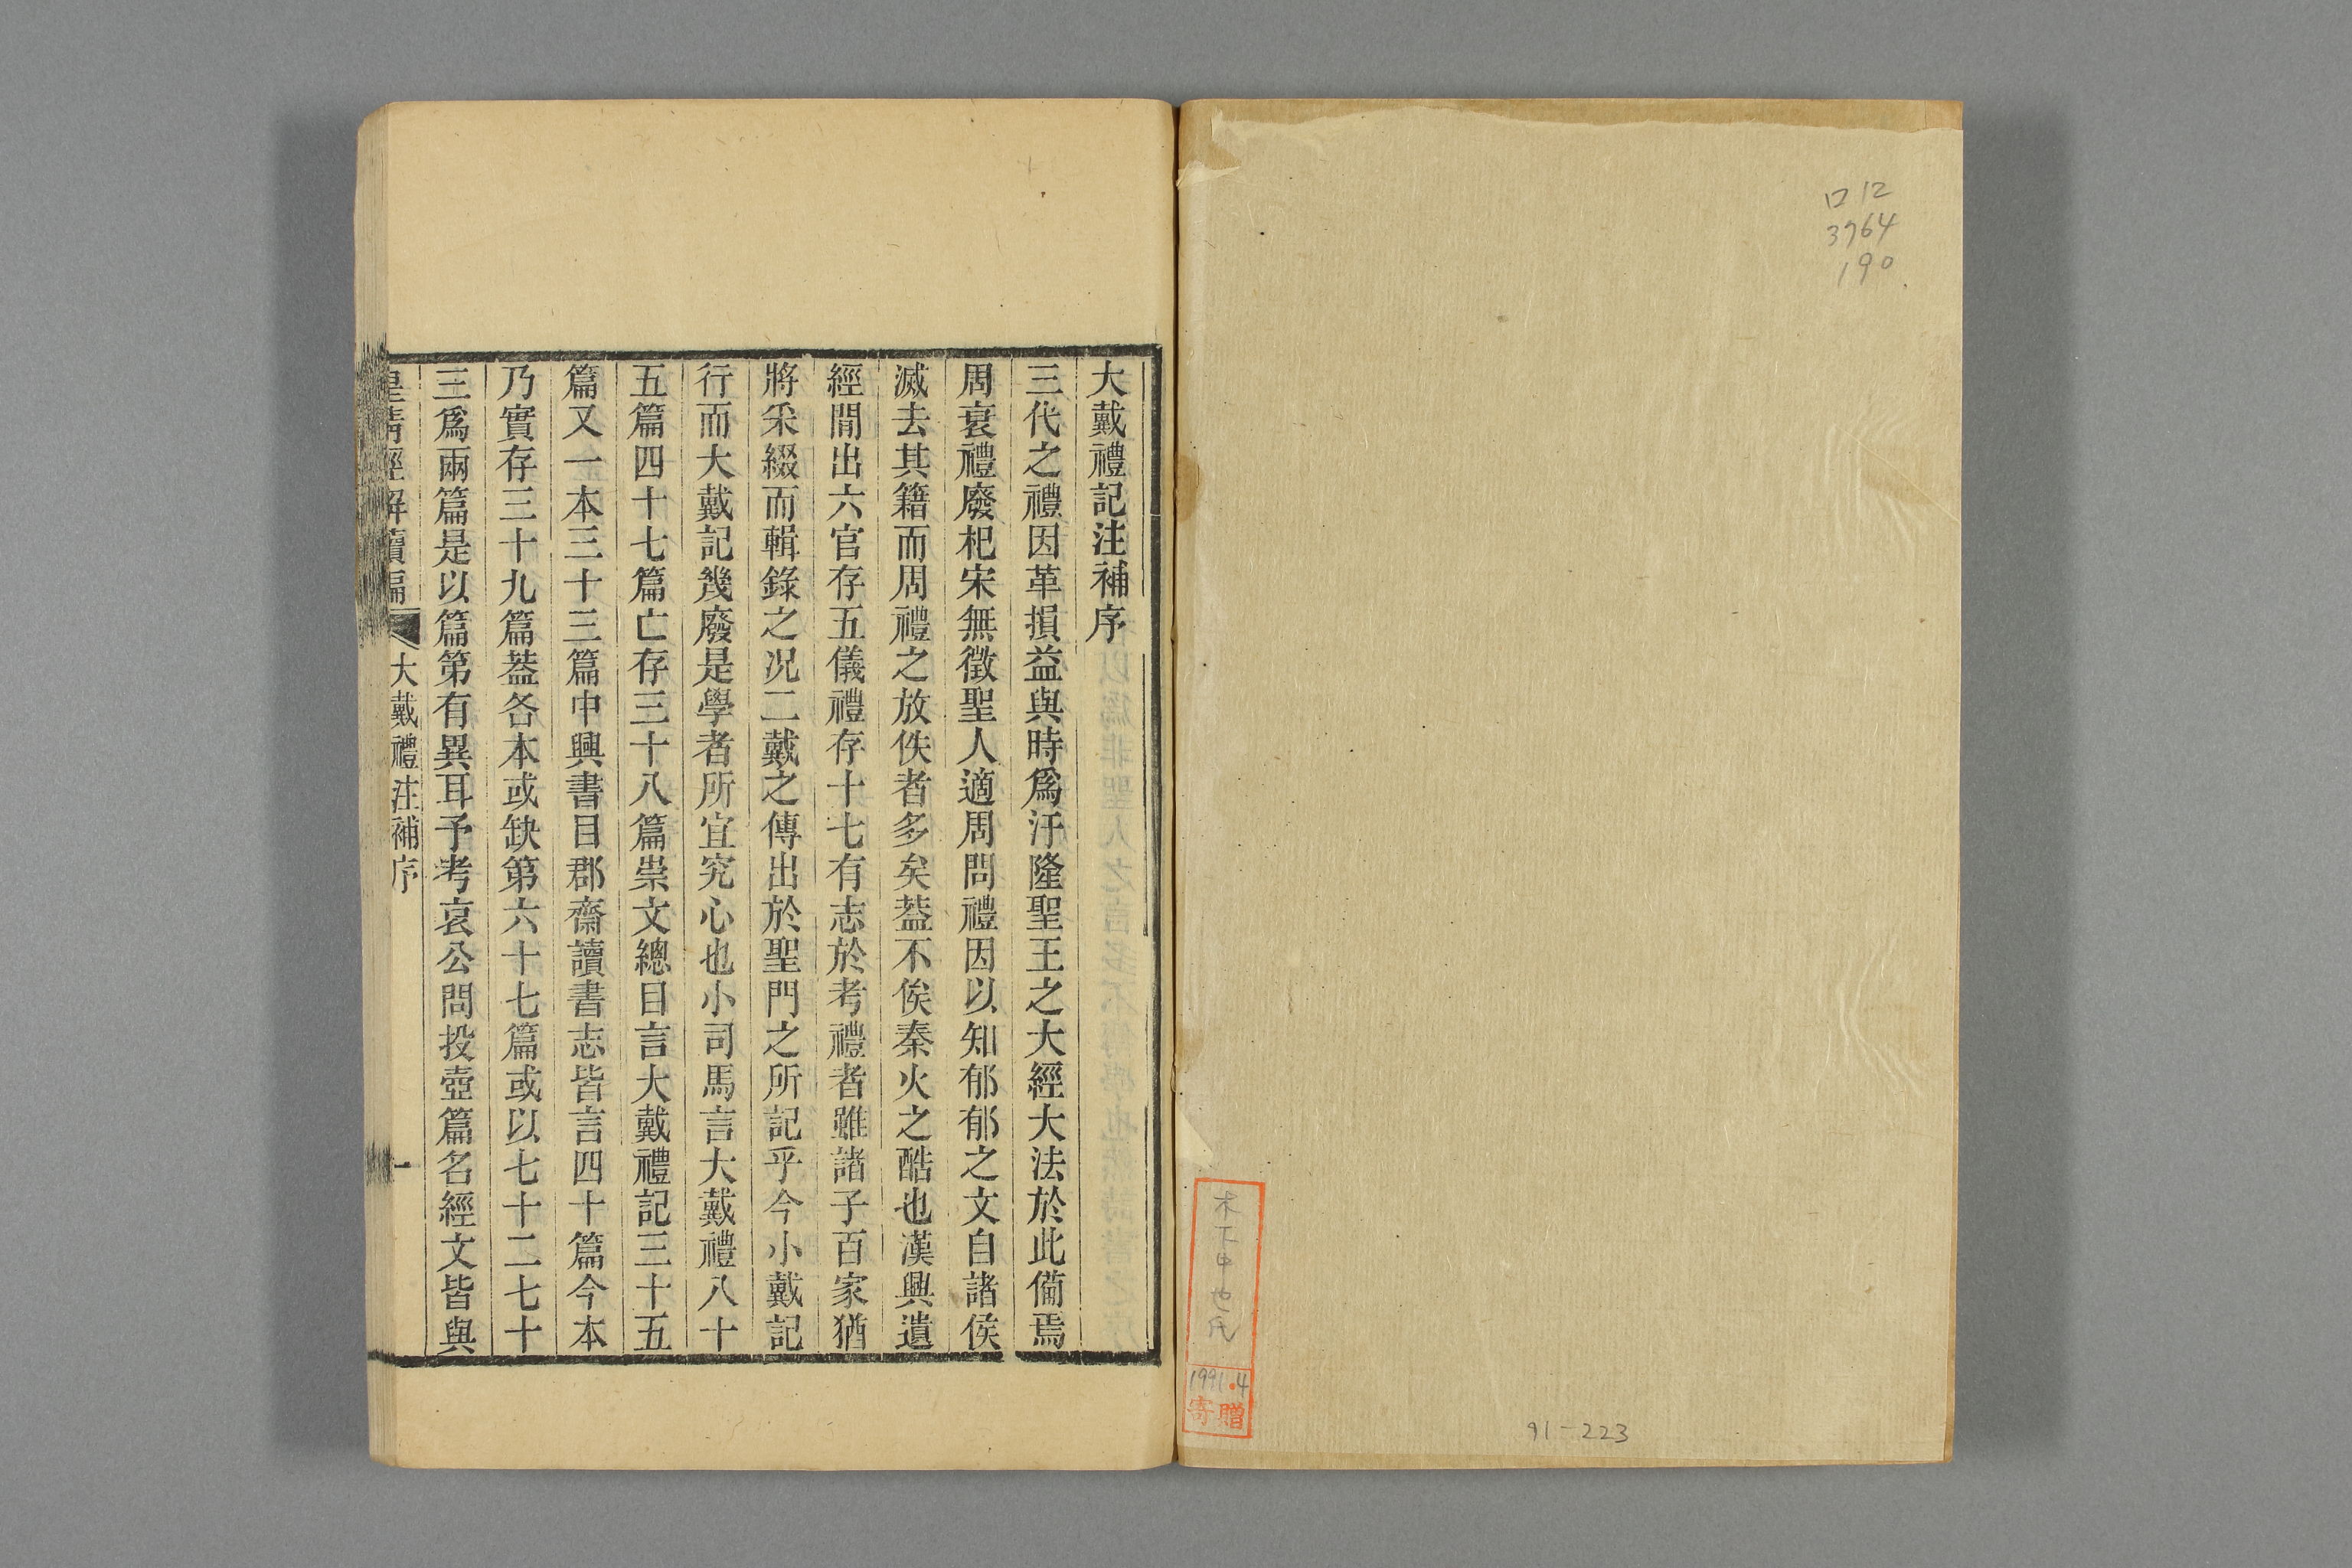 ロ12
3764
190
木下中也氏
1991.4
寄贈
91-223
大戴禮記注補序
三代之禮因革損益與時爲汙隆聖王之大經大法於此備焉
周衰禮廢杞宋無徵聖人適周問禮因以知郁郁之文自諸侯
滅去其籍而周禮之放佚者多矣葢不俟秦火之酷也漢興遺
經閒出六官存五儀禮存十七有志於考禮者雖諸子百家猶
將采綴而輯錄之况二戴之傳出於聖門之所記乎今小戴記
行而大戴記幾廢是學者所宜究心也小司馬言大戴禮八十
五篇四十七篇亡存三十八篇崇文總目言大戴禮記三十五
篇又一本三十三篇中興書目郡齋讀書志皆言四十篇今本
乃實存三十九篇葢各本或缺第六十七篇或以七十二七十
三爲兩篇是以篇第有異耳予考哀公問投壺篇名經文皆與
皇清經解續編 大戴禮注補序 一